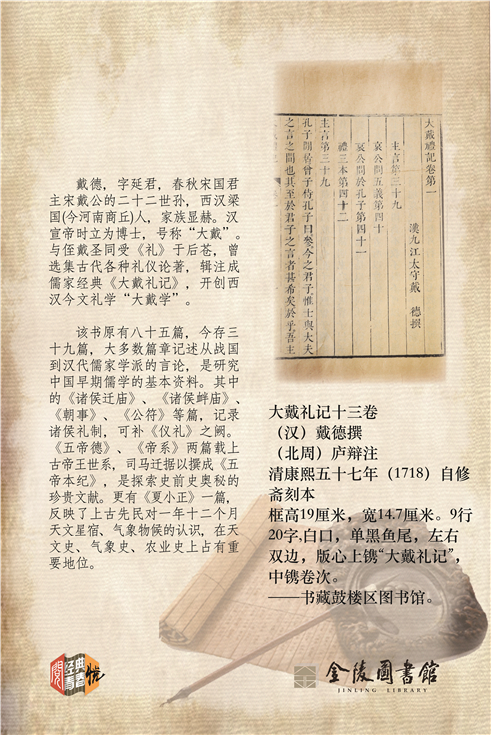 戴德，字延君，春秋宋国君
主宋戴公的二十二世孙，西汉梁
国(今河南商丘)人，家族显赫。汉
宣帝时立为博士，号称“大戴”。
与侄戴圣同受《礼》于后苍，曾
选集古代各种礼仪论著，辑注成
儒家经典《大戴礼记》，开创西
汉今文礼学“大戴学”。
该书原有八十五篇，今存三
十九篇，大多数篇章记述从战国
到汉代儒家学派的言论，是研究
中国早期儒学的基本资料。其中
的《诸侯迁庙》、《诸侯衅庙》、
《朝事》、《公符》等篇，记录
诸侯礼制，可补《仪礼》之阙。
《五帝德》、《帝系》两篇载上
古帝王世系，司马迁据以撰成《五
帝本纪》，是探索史前史奥秘的
珍贵文献。更有《夏小正》一篇，
反映了上古先民对一年十二个月
天文星宿、气象物候的认识，在天
文史、气象史、农业史上占有重
要地位。
大戴禮記卷第一
漢九江太守戴 德撰
主言第三十九
哀公問五義第四十
哀公問於孔子第四十一
禮三本第四十二
主言第三十九
孔子閒居曾子侍孔子曰參今之君子惟士與大夫
之言之間也其至於君子之言者甚希矣於乎吾主
大戴礼记十三卷
（汉）戴德撰
（北周）庐辩注
清康熙五十七年（1718）自修
斋刻本
框高19厘米，宽14.7厘米。9行
20字,白口，单黑鱼尾，左右
双边，版心上镌“大戴礼记”，
中镌卷次。
——书藏鼓楼区图书馆。
阅经典
青春悦
金陵圖書館
JINLING LIBRARY